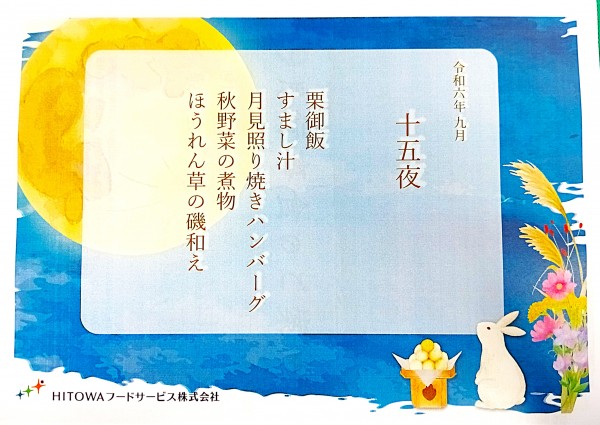 令和六年 九月
十五夜
栗御飯
すまし汁
月見照り焼きハンバーグ
秋野菜の煮物
ほうれん草の磯和え
HITOWAフードサービス株式会社